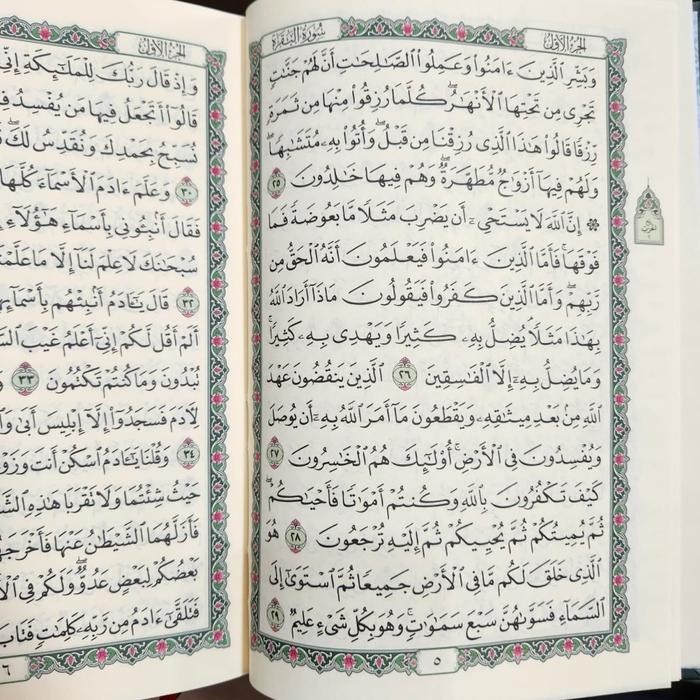 سُورَةُ البَقَرَةِ
الجُزْءُ الأَوَّلُ
وَبَشِّرِ ٱلَّذِينَ ءَامَنُوا۟ وَعَمِلُوا۟ ٱلصَّـٰلِحَـٰتِ أَنَّ لَهُمْ جَنَّـٰتٍ
تَجْرِى مِن تَحْتِهَا ٱلْأَنْهَـٰرُ ۖ كُلَّمَا رُزِقُوا۟ مِنْهَا مِن ثَمَرَةٍ
رِّزْقًا قَالُوا۟ هَـٰذَا ٱلَّذِى رُزِقْنَا مِن قَبْلُ ۖ وَأُتُوا۟ بِهِۦ مُتَشَـٰبِهًا ۖ
وَلَهُمْ فِيهَآ أَزْوَٰجٌ مُّطَهَّرَةٌ ۖ وَهُمْ فِيهَا خَـٰلِدُونَ ٢٥
۞ إِنَّ ٱللَّهَ لَا يَسْتَحْىِۦٓ أَن يَضْرِبَ مَثَلًا مَّا بَعُوضَةً فَمَا
فَوْقَهَا ۚ فَأَمَّا ٱلَّذِينَ ءَامَنُوا۟ فَيَعْلَمُونَ أَنَّهُ ٱلْحَقُّ مِن
رَّبِّهِمْ ۖ وَأَمَّا ٱلَّذِينَ كَفَرُوا۟ فَيَقُولُونَ مَاذَآ أَرَادَ ٱللَّهُ
بِهَـٰذَا مَثَلًا ۘ يُضِلُّ بِهِۦ كَثِيرًا وَيَهْدِى بِهِۦ كَثِيرًا ۚ
وَمَا يُضِلُّ بِهِۦٓ إِلَّا ٱلْفَـٰسِقِينَ ٢٦ ٱلَّذِينَ يَنقُضُونَ عَهْدَ
ٱللَّهِ مِنۢ بَعْدِ مِيثَـٰقِهِۦ وَيَقْطَعُونَ مَآ أَمَرَ ٱللَّهُ بِهِۦٓ أَن يُوصَلَ
وَيُفْسِدُونَ فِى ٱلْأَرْضِ ۚ أُو۟لَـٰٓئِكَ هُمُ ٱلْخَـٰسِرُونَ ٢٧
كَيْفَ تَكْفُرُونَ بِٱللَّهِ وَكُنتُمْ أَمْوَٰتًا فَأَحْيَـٰكُمْ ۖ
ثُمَّ يُمِيتُكُمْ ثُمَّ يُحْيِيكُمْ ثُمَّ إِلَيْهِ تُرْجَعُونَ ٢٨ هُوَ
ٱلَّذِى خَلَقَ لَكُم مَّا فِى ٱلْأَرْضِ جَمِيعًا ثُمَّ ٱسْتَوَىٰٓ إِلَى
ٱلسَّمَآءِ فَسَوَّىٰهُنَّ سَبْعَ سَمَـٰوَٰتٍ ۚ وَهُوَ بِكُلِّ شَىْءٍ عَلِيمٌ ٢٩
٥
الجُزْءُ الأَوَّلُ
وَإِذْ قَالَ رَبُّكَ لِلْمَلَـٰٓئِكَةِ إِنِّى
قَالُوٓا۟ أَتَجْعَلُ فِيهَا مَن يُفْسِدُ
نُسَبِّحُ بِحَمْدِكَ وَنُقَدِّسُ لَكَ ۖ
٣٠ وَعَلَّمَ ءَادَمَ ٱلْأَسْمَآءَ كُلَّهَا
فَقَالَ أَنۢبِـُٔونِى بِأَسْمَآءِ هَـٰٓؤُلَآءِ
سُبْحَـٰنَكَ لَا عِلْمَ لَنَآ إِلَّا مَا عَلَّمْتَنَا
٣٢ قَالَ يَـٰٓـَٔادَمُ أَنۢبِئْهُم بِأَسْمَآئِهِمْ
أَلَمْ أَقُل لَّكُمْ إِنِّىٓ أَعْلَمُ غَيْبَ
تُبْدُونَ وَمَا كُنتُمْ تَكْتُمُونَ ٣٣
لِـَٔادَمَ فَسَجَدُوٓا۟ إِلَّآ إِبْلِيسَ أَبَىٰ
٣٤ وَقُلْنَا يَـٰٓـَٔادَمُ ٱسْكُنْ أَنتَ
حَيْثُ شِئْتُمَا وَلَا تَقْرَبَا هَـٰذِهِ
فَأَزَلَّهُمَا ٱلشَّيْطَـٰنُ عَنْهَا فَأَخْرَجَهُمَا
بَعْضُكُمْ لِبَعْضٍ عَدُوٌّ ۖ وَلَكُمْ فِى
فَتَلَقَّىٰٓ ءَادَمُ مِن رَّبِّهِۦ كَلِمَـٰتٍ فَتَابَ
٦